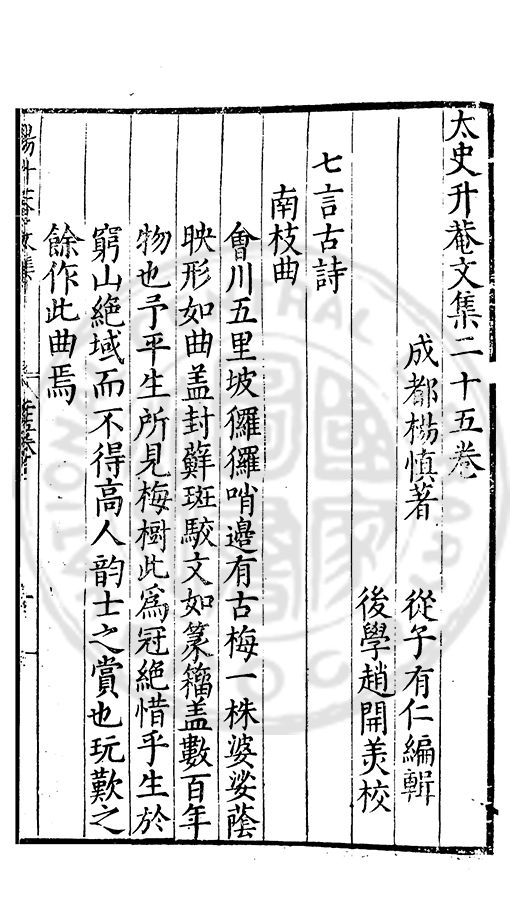 太史升菴文集二十五卷
成都楊慎著 從子有仁編輯
後學趙開美校
七言古詩
南枝曲
會川五里坡玀玀哨邉有古梅一株婆娑蔭
映形如曲盖封蘚斑駮文如篆籀盖數百年
物也予平生所見梅樹此為冠絕惜乎生於
窮山絕域而不得高人韵士之賞也玩歎之
餘作此曲焉